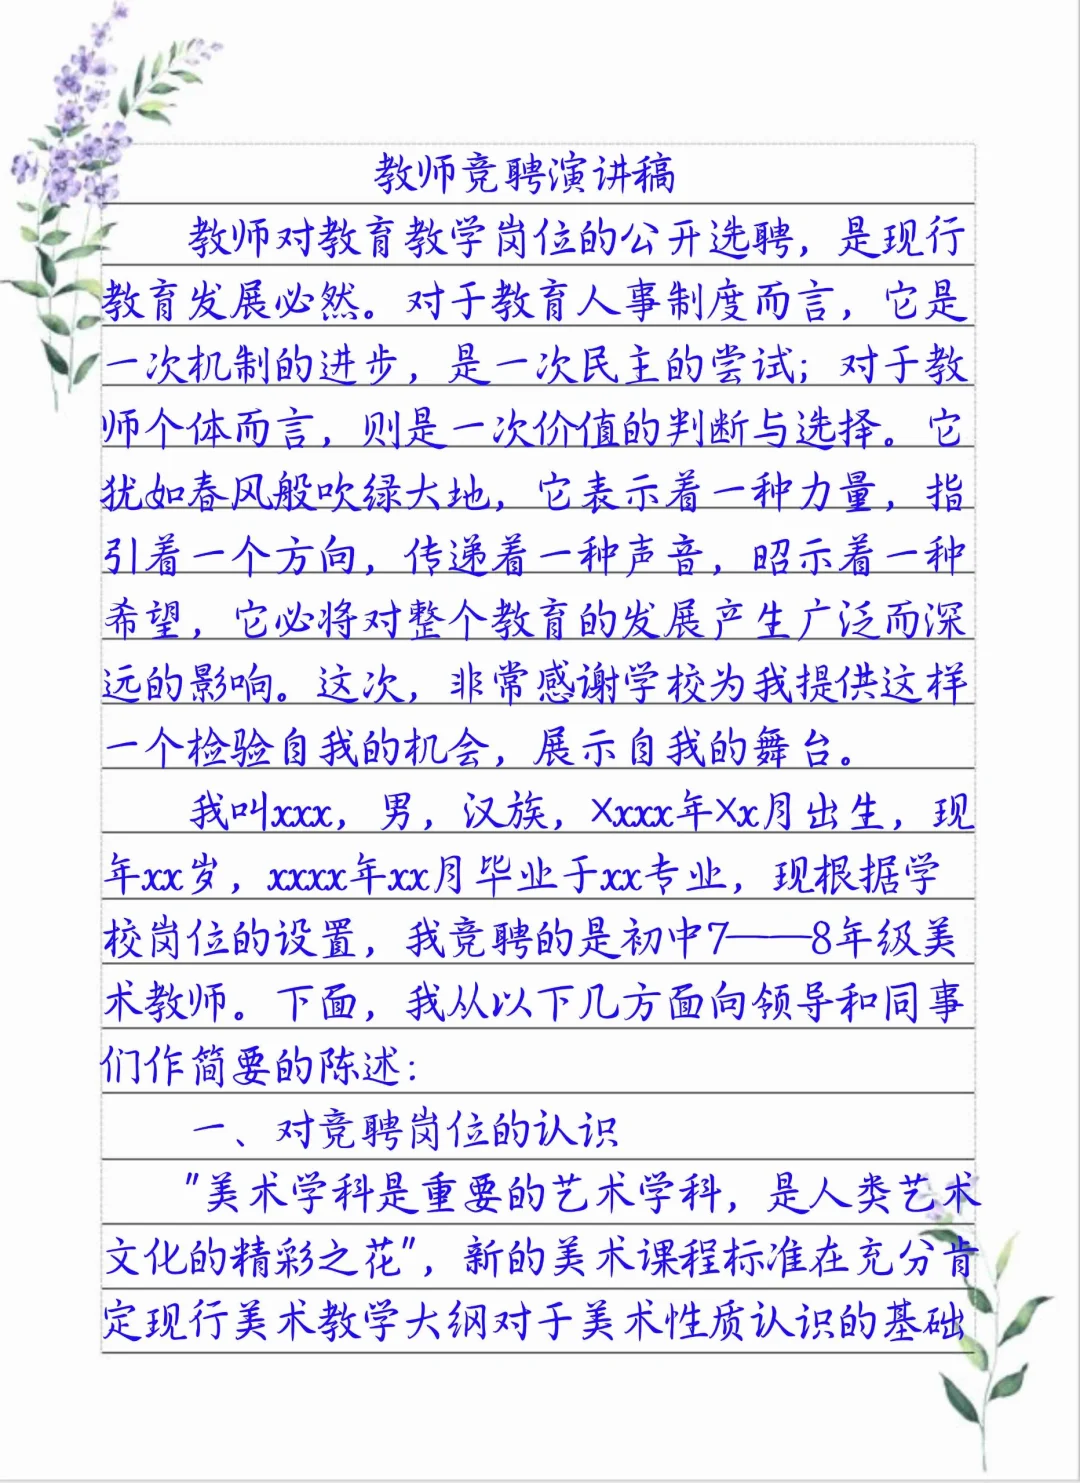 教师竞聘演讲稿
教师对教育教学岗位的公开选聘，是现行
教育发展必然。对于教育人事制度而言，它是
一次机制的进步，是一次民主的尝试；对于教
师个体而言，则是一次价值的判断与选择。它
犹如春风般吹绿大地，它表示着一种力量，指
引着一个方向，传递着一种声音，昭示着一种
希望，它必将对整个教育的发展产生广泛而深
远的影响。这次，非常感谢学校为我提供这样
一个检验自我的机会，展示自我的舞台。
我叫xxx，男，汉族，Xxxx年Xx月出生，现
年xx岁，xxxx年xx月毕业于xx专业，现根据学
校岗位的设置，我竞聘的是初中7——8年级美
术教师。下面，我从以下几方面向领导和同事
们作简要的陈述：
一、对竞聘岗位的认识
"美术学科是重要的艺术学科，是人类艺术
文化的精彩之花"，新的美术课程标准在充分肯
定现行美术教学大纲对于美术性质认识的基础